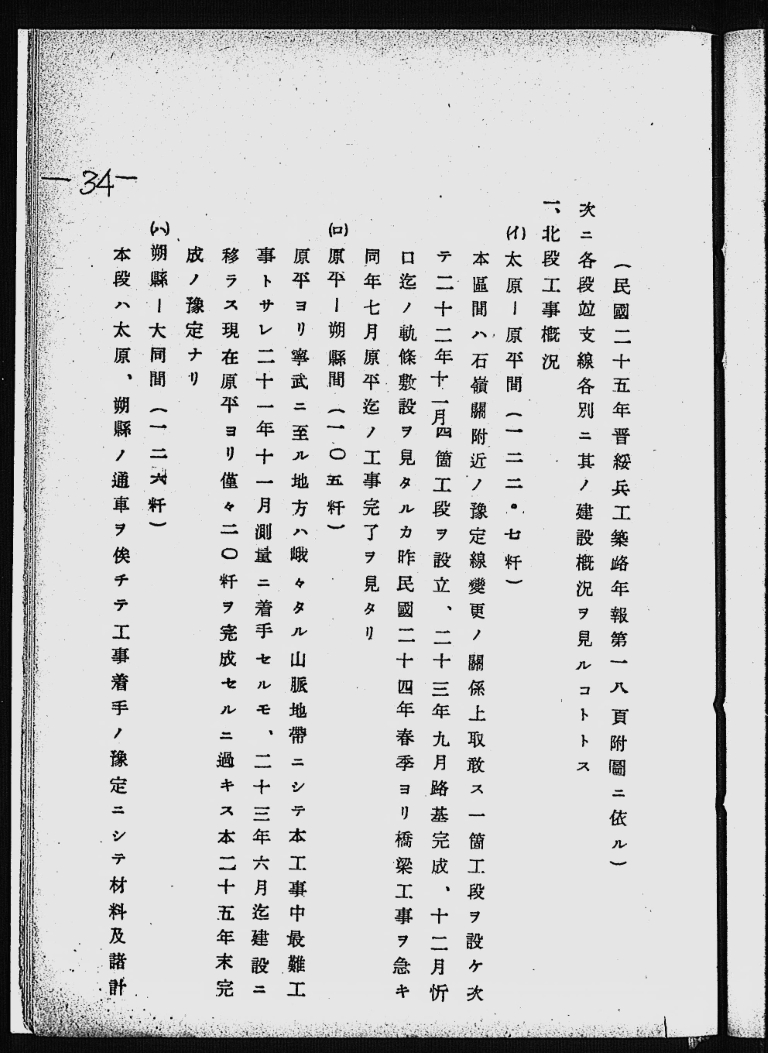 (民國二十五年晋綏兵工築路年報第一八頁附圖ニ依ル)
次ニ各段竝支線各別ニ其ノ建設槪況ヲ見ルコトトス
一、北段工事槪況
(イ)太原ー原平間(一二二・七粁)
本區間ハ石嶺關附近ノ豫定線變更ノ關係上取敢ス一箇工段ヲ設ケ次
テ二十二年十一月四箇工段ヲ設立、二十三年九月路基完成、十二月忻
口迄ノ軌條敷設ヲ見タルカ昨民國二十四年春季ヨリ橋梁工事ヲ急キ
同年七月原平迄ノ工事完了ヲ見タリ
(ロ)原平ー朔縣間(一〇五粁)
原平ヨリ寧武ニ至ル地方ハ峨々タル山脈地帶ニシテ本工事中最難工
事トサレ二十一年十一月測量ニ着手セルモ、二十三年六月迄建設ニ
移ラス現在原平ヨリ僅々二〇粁ヲ完成セルニ過キス本二十五年末完
成ノ豫定ナリ
(ハ)朔縣ー大同間(一二六粁)
本段ハ太原、朔縣ノ通車ヲ俟チテ工事着手ノ豫定ニシテ材料及諸計
—34—